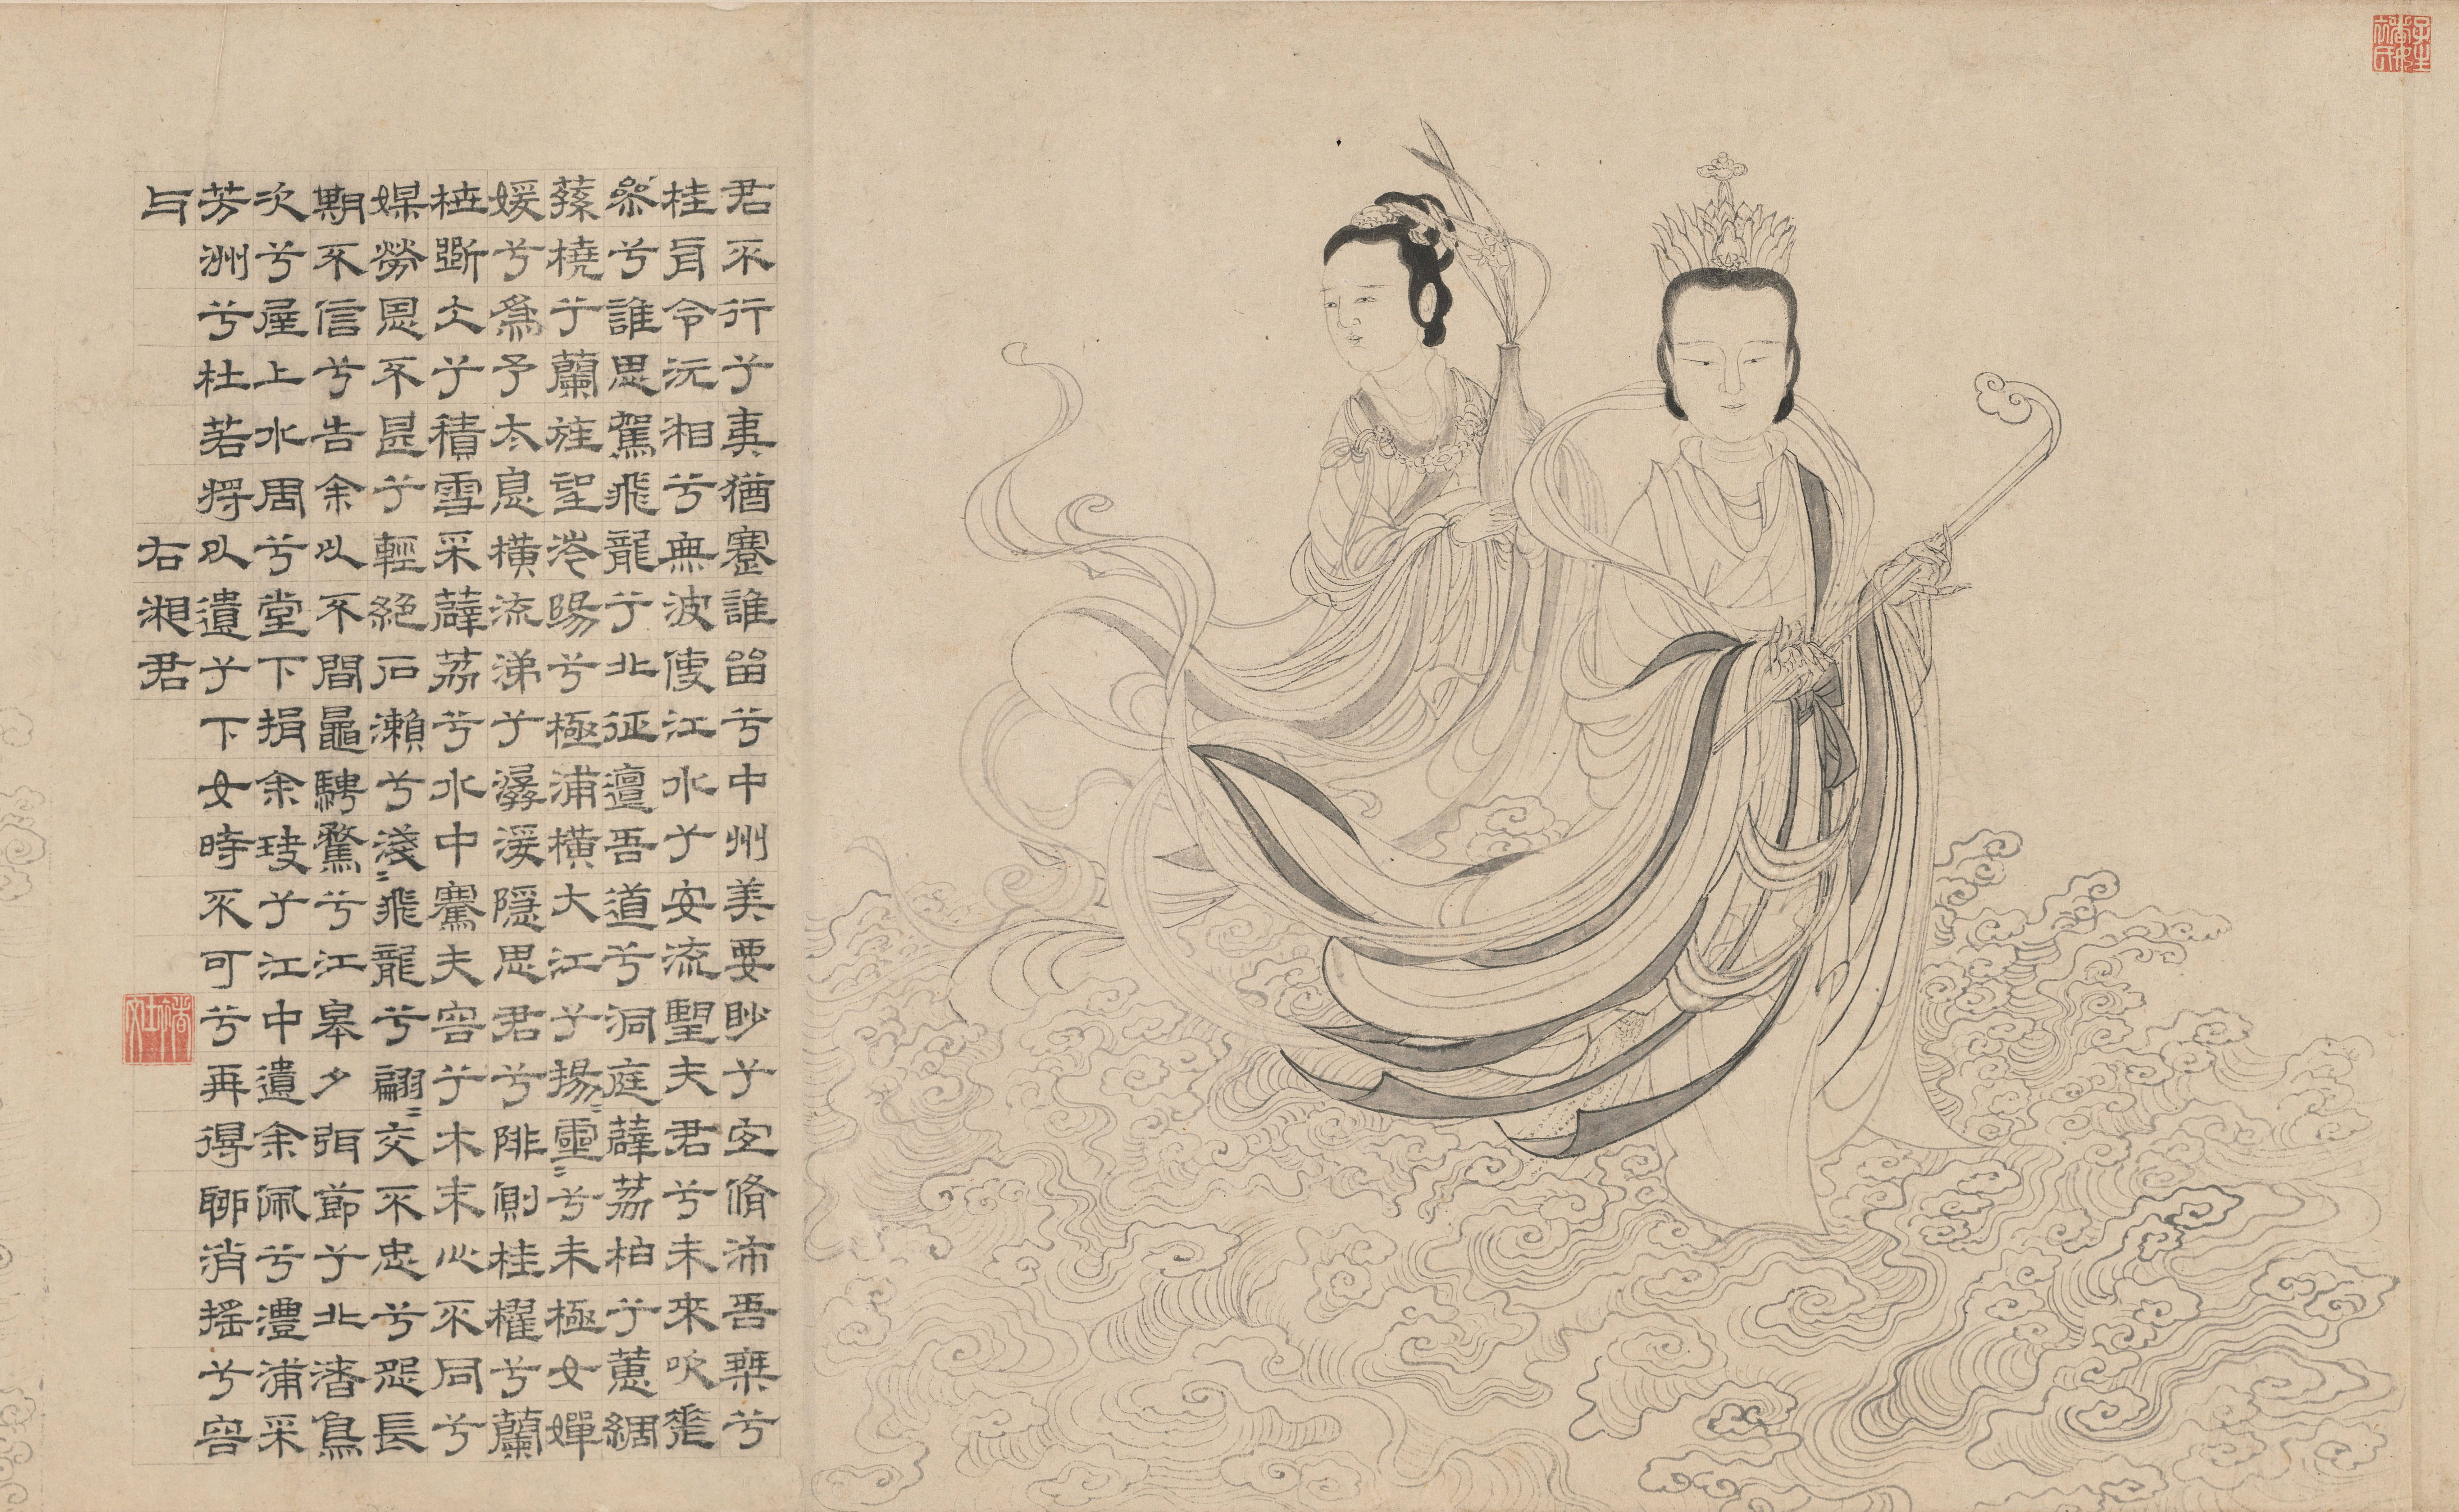 君不行兮夷猶蹇誰留兮中州美要眇兮宜脩沛吾乘兮
桂舟令沅湘兮無波使江水兮安流望夫君兮未來吹差
參兮誰思駕飛龍兮北征邅吾道兮洞庭薜荔柏兮蕙綢
蓀橈兮蘭旌望涔陽兮極浦橫大江兮揚〻靈〻兮未極女嬋
媛兮爲予太息橫流涕兮潺湲隱思君兮陫側桂櫂兮蘭
枻斲仌兮積雪采薜荔兮水中騫夫容兮木末心不同兮
媒勞恩不甚兮輕絕石瀨兮淺〻飛龍兮翩〻交不忠兮怨長
期不信兮告余以不閒鼂騁騖兮江皋夕弭節兮北渚鳥
次兮屋上水周兮堂下捐余玦兮江中遺余佩兮澧浦采
芳洲兮杜若將以遺兮下女時不可兮再得聊消搖兮容
与
右湘君